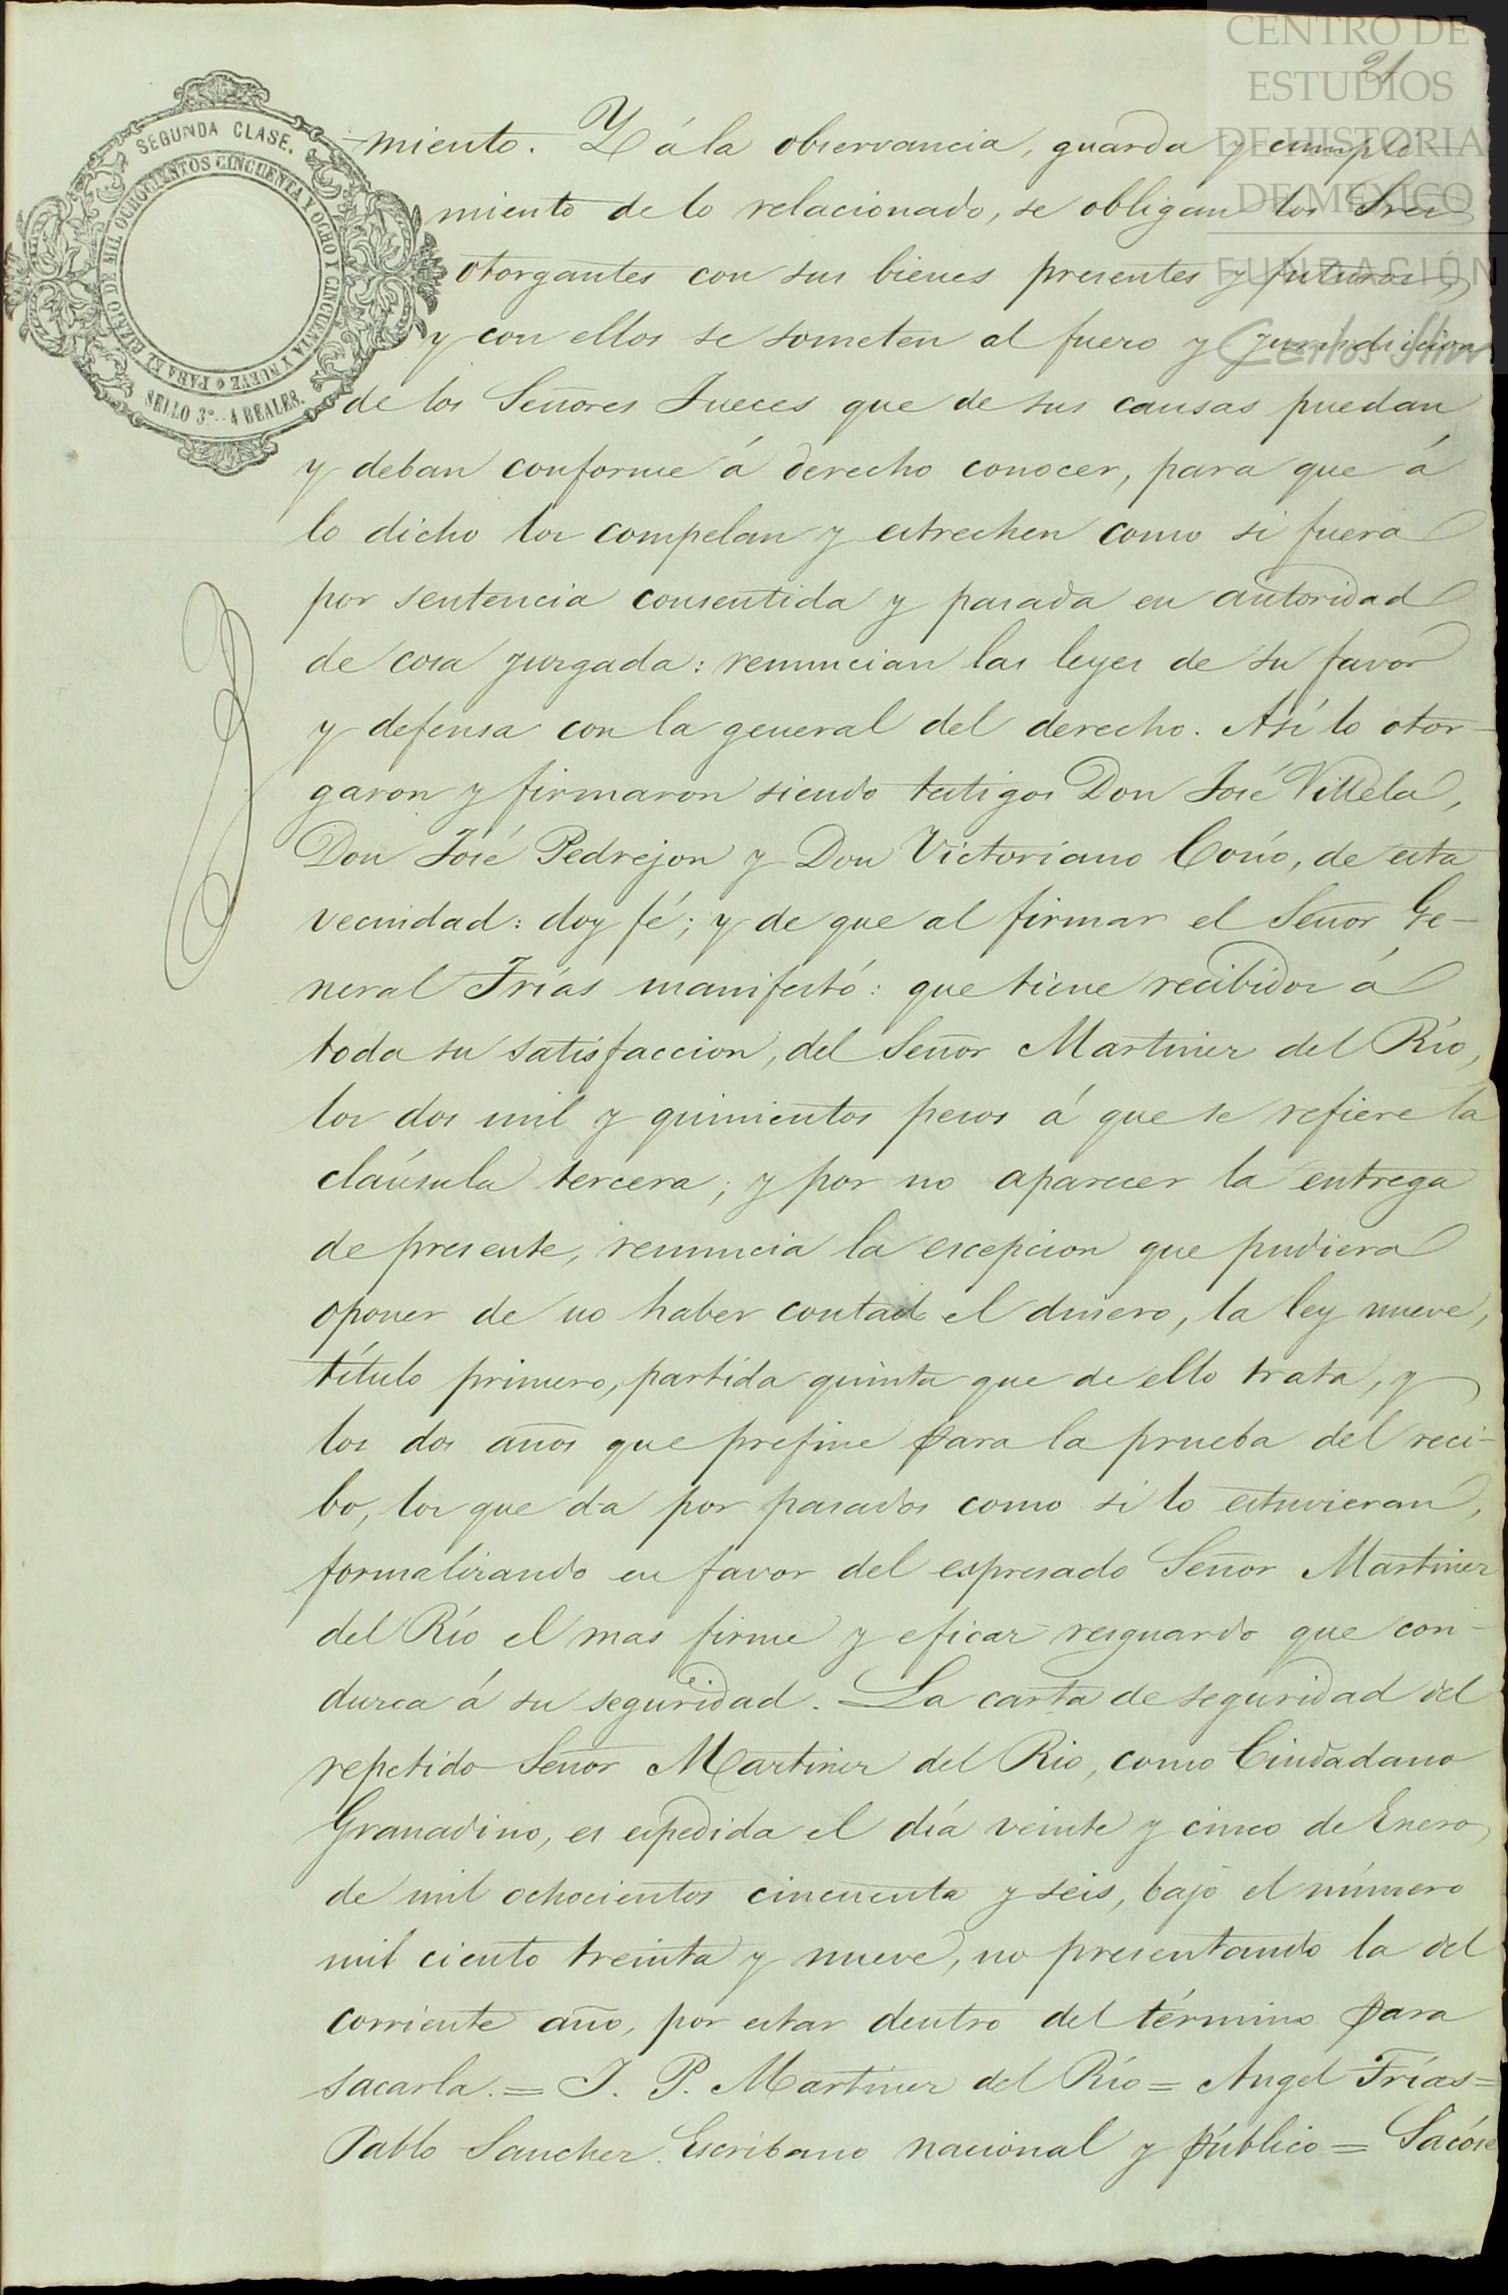 CENTRO DE
ESTUDIOS
DE HISTORIA
DE MEXICO
FUNDACIÓN
Carlos Slim
21
SEGUNDA CLASE.
PARA EL BIENIO DE MIL OCHOCIENTOS CINCUENTA Y OCHO Y CINCUENTA Y NUEVE
SELLO 3º. 4 REALES.
miento. Y á la observancia, guarda y cumpli-
miento de lo relacionado, se obligan los Sres
otorgantes con sus bienes presentes y futuros,
y con ellos se someten al fuero y jurisdiccion
de los Señores Jueces que de sus causas puedan
y deban conforme á derecho conocer, para que á
lo dicho los compelan y estrechen como si fuera
por sentencia consentida y pasada en autoridad
de cosa juzgada: renuncian las leyes de su favor
y defensa con la general del derecho. Así lo otor-
garon y firmaron siendo testigos Don José Villela,
Don José Pedrejon y Don Victoriano Cosío, de esta
vecindad: doy fé; y de que al firmar el Señor Ge-
neral Frías manifestó: que tiene recibidos á
toda su satisfaccion, del Señor Martinez del Río,
los dos mil y quinientos pesos á que se refiere la
claúsula tercera; y por no aparecer la entrega
de presente, renuncia la escepcion que pudiera
oponer de no haber contado el dinero, la ley nueve,
título primero, partida quinta que de ello trata, y
los dos años que prefine para la prueba del reci-
bo, los que da por pasados como si lo estuvieran,
formalizando en favor del espresado Señor Martinez
del Río el mas firme y eficaz resguardo que con-
duzca á su seguridad. La carta de seguridad del
repetido Señor Martinez del Rio, como Ciudadano
Granadino, es espedida el día veinte y cinco de Enero
de mil ochocientos cincuenta y seis, bajo el número
mil ciento treinta y nueve, no presentando la del
corriente año, por estar dentro del término para
sacarla. = J. P. Martinez del Río = Angel Frías =
Pablo Sanchez. Escribano nacional y público = Sacóse